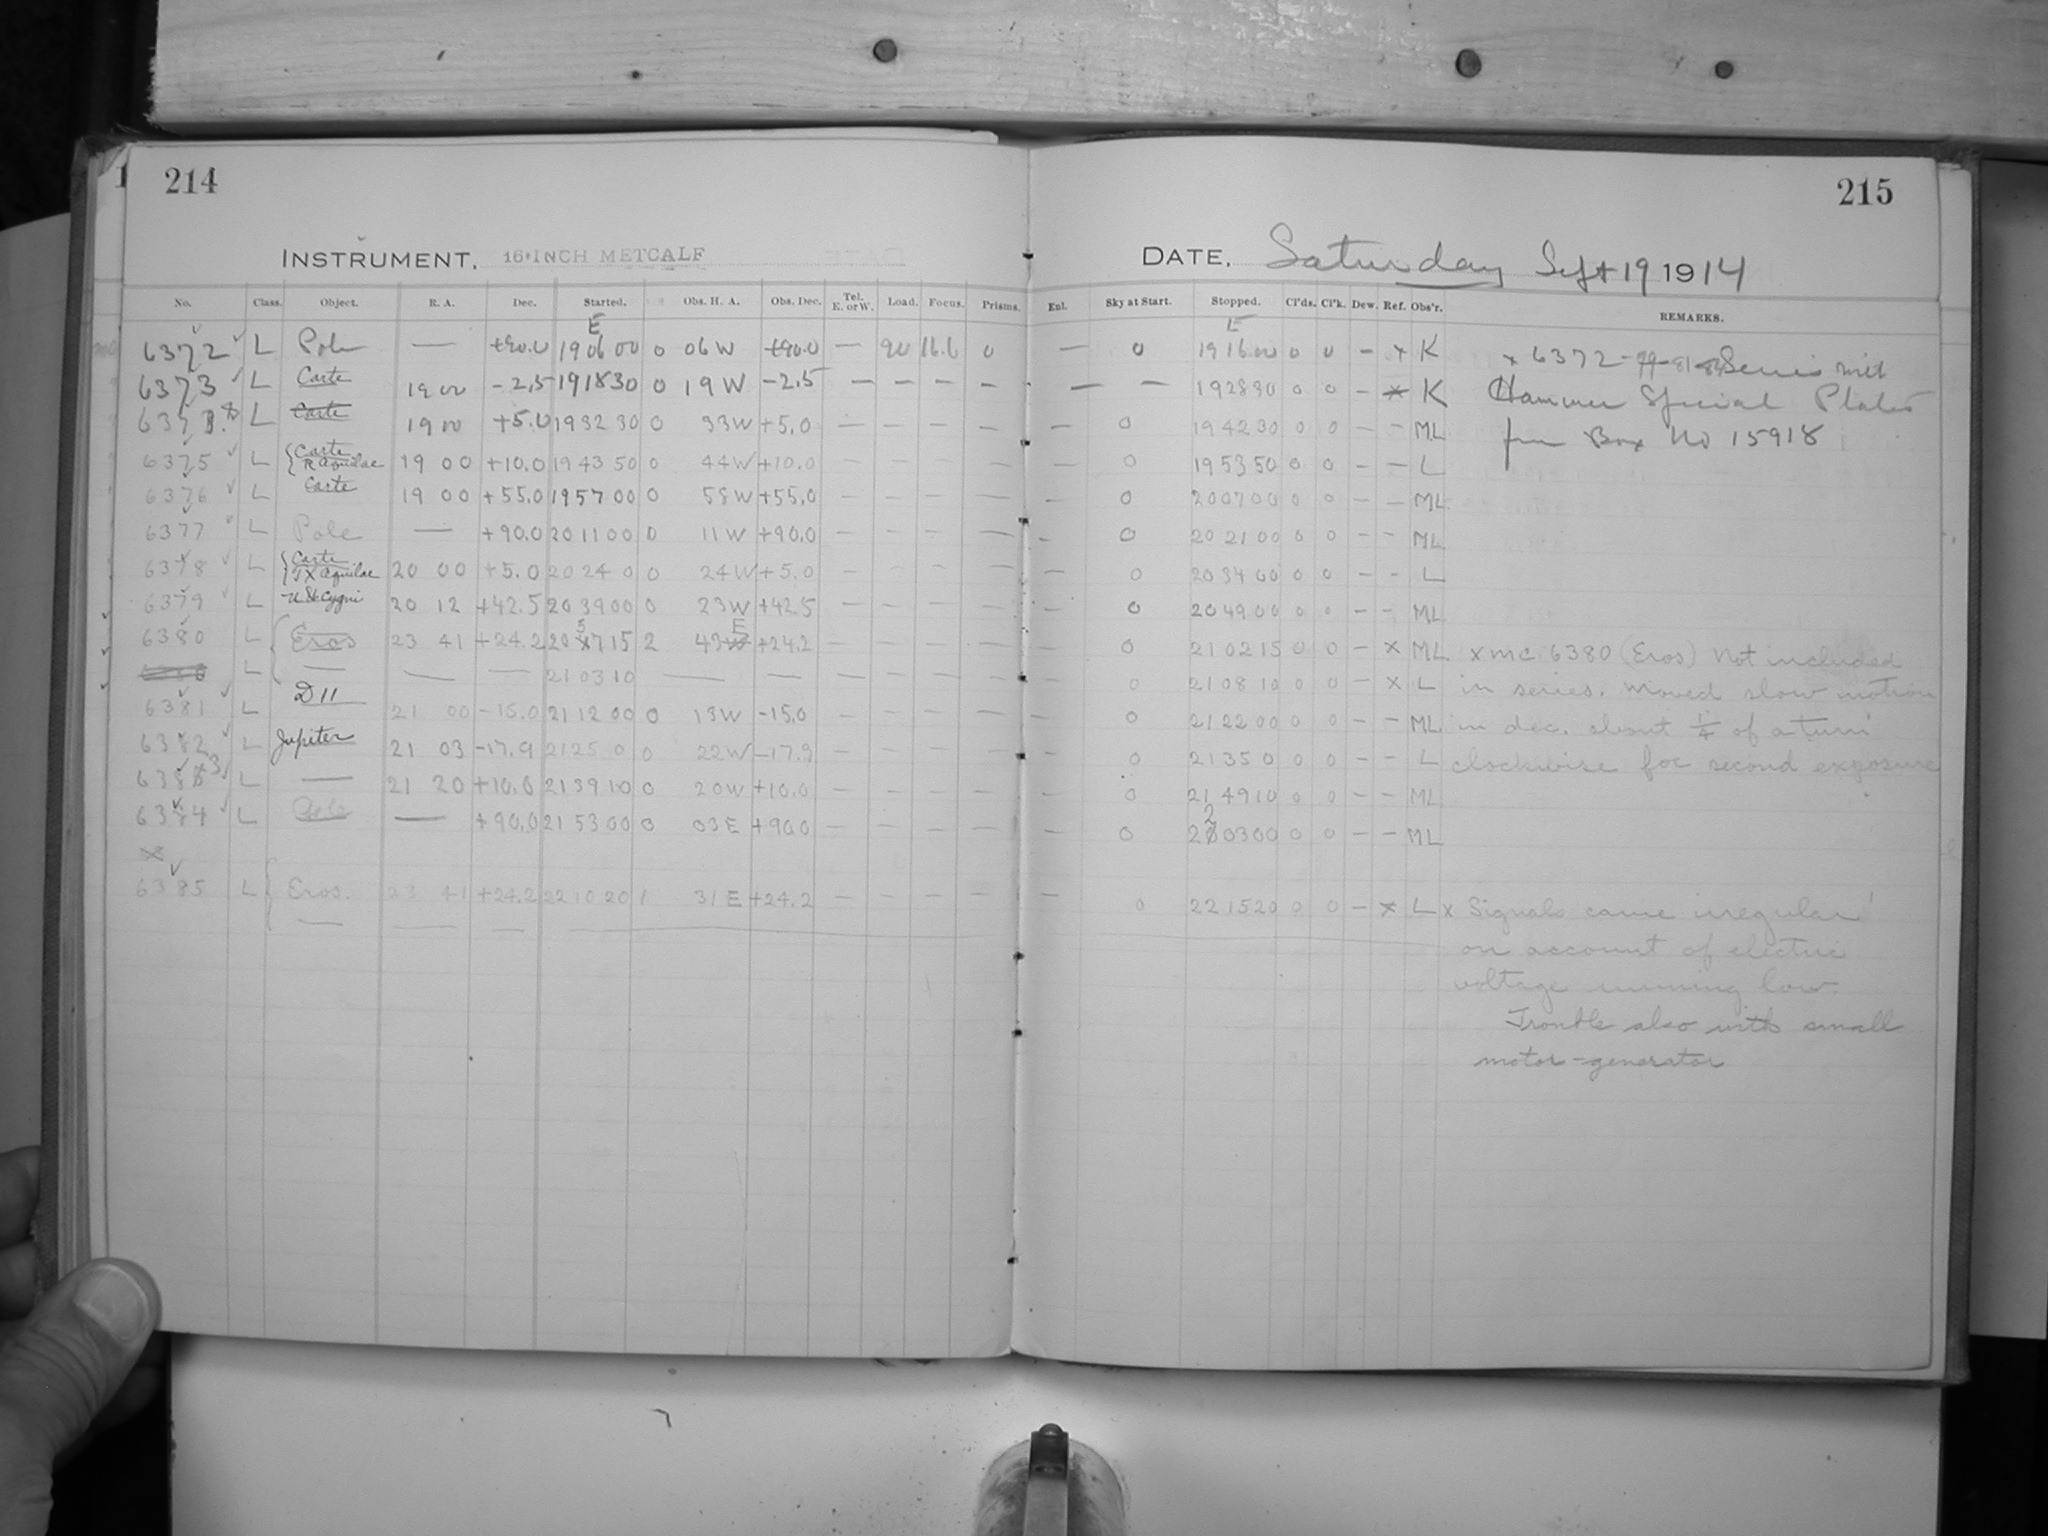 214
215
INSTRUMENT. 16-INCH METCALF
DATE. Saturday Sept 19 1914
No. Class. Object. R. A. Dec. Started. Obs. H. A. Obs. Dec. Tel. E. or W. Load. Focus. Prisms. Enl. Sky at Start. Stopped. Cl'ds. Cl'k. Dew. Ref. Obs'r. REMARKS.
E E
6372 L Pole — +90.0 19 06 00 0 06 W +90.0 — 90 16.6 0 — 0 19 16 00 0 0 - x K x 6372 Series with
6373 L Carte 19 00 -2.5 19 18 30 0 19 W -2.5 — — — — — — 19 28 30 0 0 - x K Hammer Special Plates
L Carte 19 00 +5.0 19 32 30 0 33 W +5.0 — — — — — 0 19 42 30 0 0 - - ML from Box No 15918
6375 L { Carte R Aquilae 19 00 +10.0 19 43 50 0 44 W +10.0 — — — — — 0 19 53 50 0 0 - - L
6376 L Carte 19 00 +55.0 19 57 00 0 58 W +55.0 — — — — — 0 20 07 00 0 0 - - ML
6377 L Pole — +90.0 20 11 00 0 11 W +90.0 — — — — — 0 20 21 00 0 0 - - ML
6378 L { Carte TX Aquilae 20 00 +5.0 20 24 0 0 24 W +5.0 — — — — — 0 20 34 00 0 0 - - L
6379 L Cygni 20 12 +42.5 20 39 00 0 23 W +42.5 — — — — — 0 20 49 00 0 0 - - ML
6380 L { Eros 23 41 +24.2 20 57 15 2 43 E +24.2 — — — — — 0 21 02 15 0 0 - x ML x mc 6380 (Eros) Not included
L — — — 21 03 10 — — — — — — — 0 21 08 10 0 0 - x L in series. Moved slow motion
6381 L D 11 21 00 -15.0 21 12 00 0 13 W -15.0 — — — — — 0 21 22 00 0 0 - - ML in dec. about 1/4 of a turn
6382 L Jupiter 21 03 -17.9 21 25 0 0 22 W -17.9 — — — — — 0 21 35 0 0 0 - - L clockwise for second exposure
L — 21 20 +10.0 21 39 10 0 20 W +10.0 — — — — — 0 21 49 10 0 0 - - ML
6384 L Pole — +90.0 21 53 00 0 03 E +90.0 — — — — — 0 22 03 00 0 0 - - ML
6385 L { Eros. 23 41 +24.2 22 10 20 1 31 E +24.2 — — — — — 0 22 15 20 0 0 - x L x Signals came irregular
on account of electric
voltage running low.
Trouble also with small
motor-generator